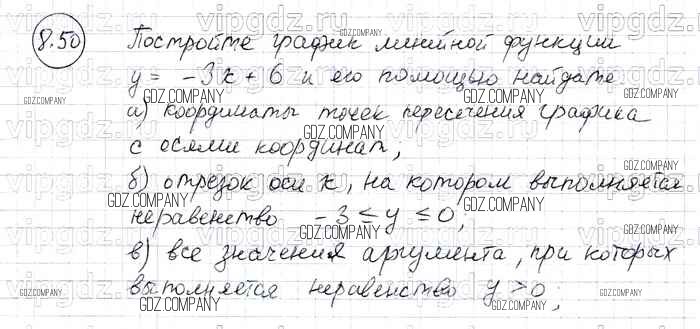 8.50 Постройте график линейной функции
y = -3x + 6 и его помощью найдите
а) координаты точек пересечения графика
с осями координат;
б) отрезок оси x, на котором выполняется
неравенство -3 ≤ y ≤ 0;
в) все значения аргумента, при которых
выполняется неравенство y > 0;